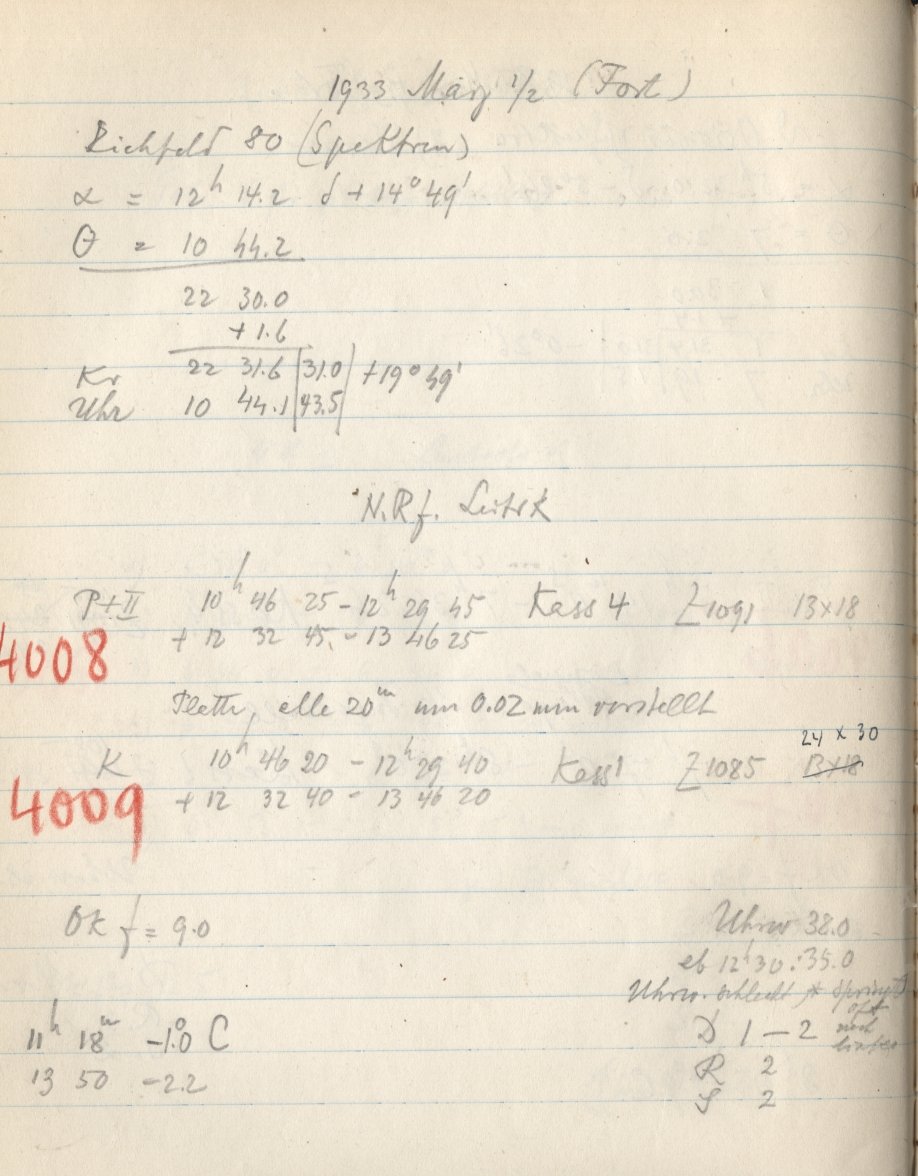 1933 März 1/2 (Fort)
Eichfeld 80 (Spektren)
α = 12h 14.2 δ + 14° 49'
θ = 10 44.2
22 30.0
+ 1.6
Kr 22 31.6 | 31.0 | + 19° 49'
Uhr 10 44.1 | 43.5 |
N.Rf.
P+II 10h 46 25 - 12h 29 45 Kass 4 Z 1091 13x18
4008 + 12 32 45 - 13 46 25
Platte, alle 20m um 0.02 mm verstellt
24 x 30
K 10h 46 20 - 12h 29 40 Kass 1 Z 1085 13x18
4009 + 12 32 40 - 13 46 20
OK f = 9.0
Uhrw 38.0
ab 12h 30 : 35.0
Uhrw. schlecht * springt
oft
nach
11h 18m -1.0° C
D 1 - 2
13 50 -2.2
R 2
S 2